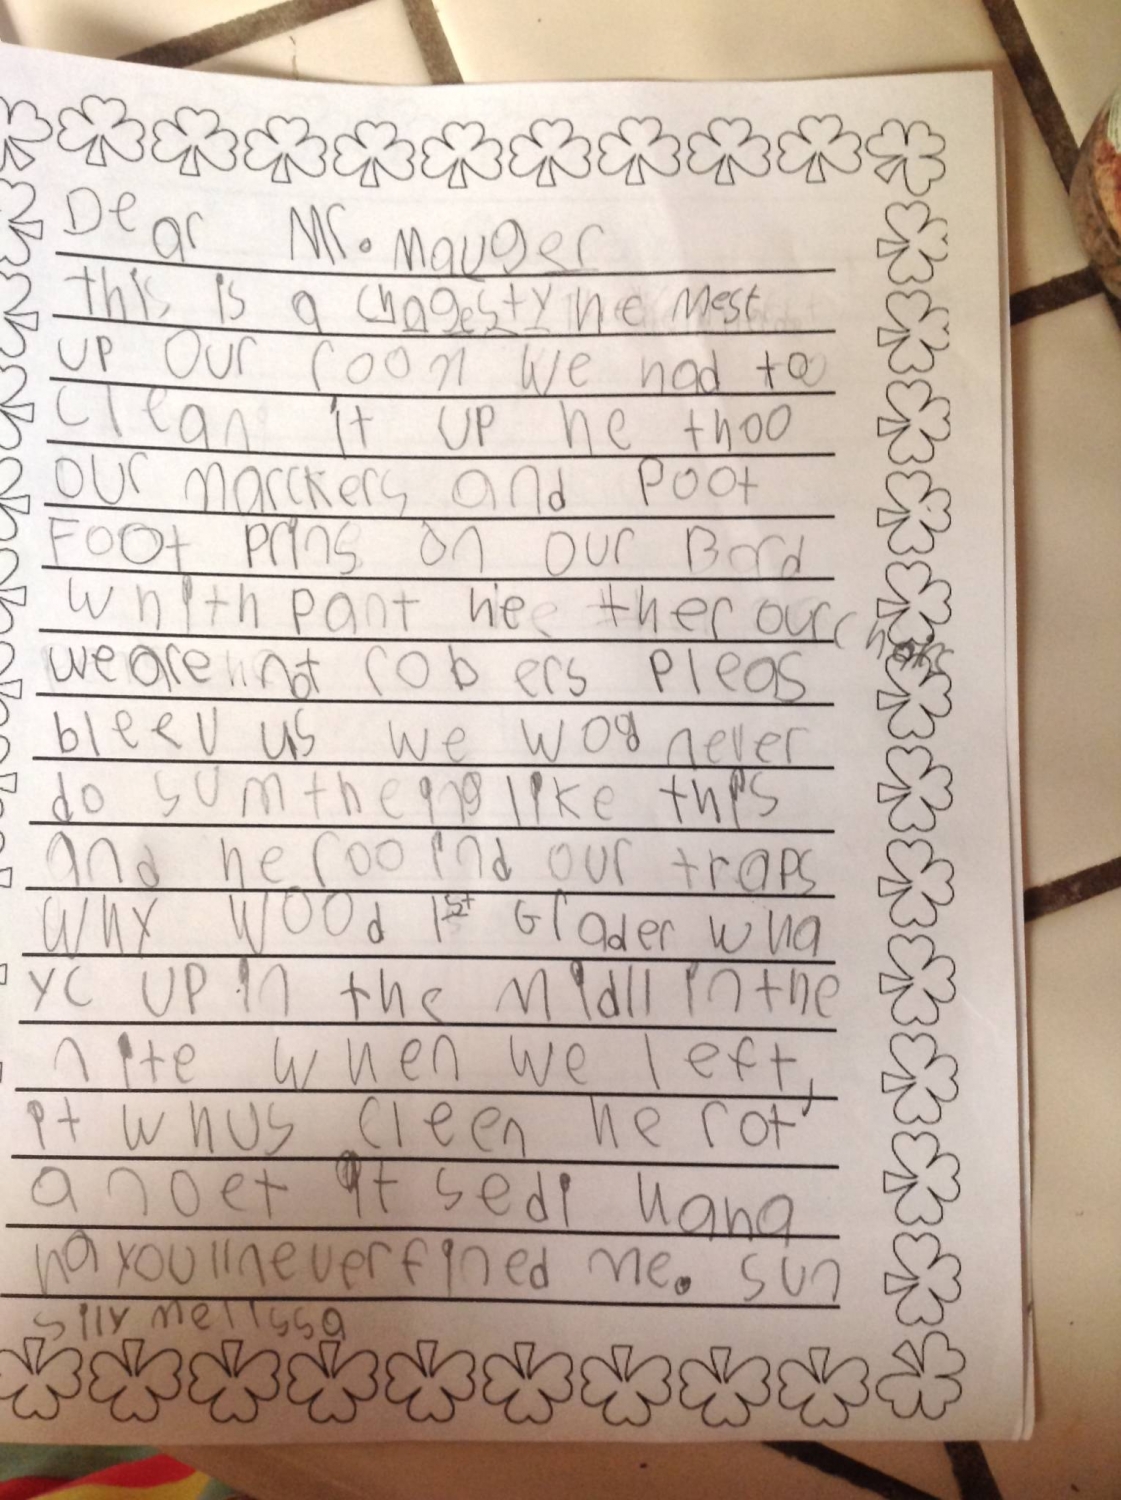 Dear Mr. Mauger
this is a chagesty he mest
up our room we had to
clean it up he thoo
our marckers and poot
Foot prins on our Bord
whith pant hee ther our chairs
we are not robers pleas
bleev us we wod never
do sumtheing like this
and he rooind our traps
why wood 1st Grader wha
yc up in the midll in the
nite when we left,
it whus cleen he rot
a noet it sedi haha
ha youllneverfined me. sun
silly melissa